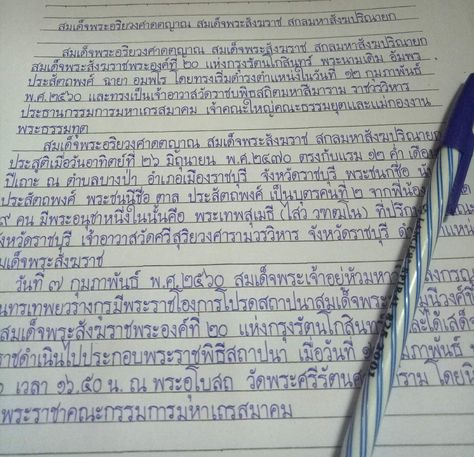 สมเด็จพระอริยวงศาคตญาณ สมเด็จพระสังฆราช สกลมหาสังฆปริณายก
สมเด็จพระอริยวงศาคตญาณ สมเด็จพระสังฆราช สกลมหาสังฆปริณายก
สมเด็จพระสังฆราชพระองค์ที่ ๒๐ แห่งกรุงรัตนโกสินทร์ พระนามเดิม อัมพร
ประสัตถพงศ์ ฉายา อมฺพโร โดยทรงเริ่มดำรงตำแหน่งในวันที่ ๑๒ กุมภาพันธ์
พ.ศ.๒๕๖๐ และทรงเป็นเจ้าอาวาสวัดราชบพิธสถิตมหาสีมาราม ราชวรวิหาร
ประธานกรรมการมหาเถรสมาคม เจ้าคณะใหญ่คณะธรรมยุตและแม่กองงาน
พระธรรมทูต
สมเด็จพระอริยวงศาคตญาณ สมเด็จพระสังฆราช สกลมหาสังฆปริณายก
ประสูติเมื่อวันอาทิตย์ที่ ๒๖ มิถุนายน พ.ศ.๒๔๗๐ ตรงกับแรม ๑๒ ค่ำ เดือน
ปีเถาะ ณ ตำบลบางป่า อำเภอเมืองราชบุรี จังหวัดราชบุรี พระชนกชื่อ
ประสัตถพงศ์ พระชนนีชื่อ ตาล ประสัตถพงศ์ เป็นบุตรคนที่ ๒ จากพี่น้อง
๙ คน มีพระอนุชาหนึ่งในนั้นคือ พระเทพสุเมธี (ไสว วฑฺฒโน) ที่ปรึกษา
จังหวัดราชบุรี เจ้าอาวาสวัดศรีสุริยวงศารามวรวิหาร จังหวัดราชบุรี
สมเด็จพระสังฆราช
วันที่ ๗ กุมภาพันธ์ พ.ศ.๒๕๖๐ สมเด็จพระเจ้าอยู่หัวมหา ลงกรณ
บดินทรเทพยวรางกูรมีพระราชโองการโปรดสถาปนาสมเด็จพระ มุนีวงศ์
สมเด็จพระสังฆราชพระองค์ที่ ๒๐ แห่งกรุงรัตนโกสินทร์ และได้เสด็จ
ราชดำเนินไปประกอบพระราชพิธีสถาปนา เมื่อวันที่ ๑ มภาพันธ์
เวลา ๑๖.๕๐ น. ณ พระอุโบสถ วัดพระศรีรัตน ราม โดย
พระราชาคณะกรรมการมหาเถรสมาคม